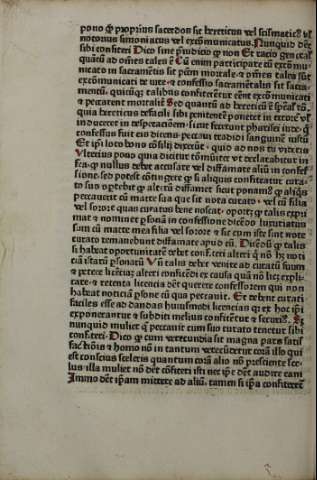 pono qꝫ proprius sacerdos sit hereticus vel scismaticꝰ vł
notorius simoniacus vel excōmunicatus. Nunquid debet
sibi confiteri Dico sine p̄iudicio ꝙ non Et racio gen̄alis
quātū ad om̄es tales ē Cū enim participare cū excōmu
nicato in sacramētis sit pctm̄ mortale ⁊ om̄es tales sūt
excōmunicati de iure ⁊ confessio sacramētalis sit sacra
mentū. quicūqꝫ talibus confiteretur eēnt excōmunicati
⁊ peccarent mortalit̄ Sed quantū ad hereticū ē sp̄ealis rō.
quia hereticus defacili sibi penitentē poneret in errorē vł
induceret in desperacōnem. sicut fecerunt pharisei iude. ꝙ
confessus fuit eis dicens. peccaui tradens sanguinē iustū
Et ip̄i loco boni cōsilij dixerūt. quid ad nos tu videris
Vlterius pono quia dicitur cōmuniter vt declarabitur in
fra. ꝙ nullus debet accusare vel diffamare aliū in confes
sione. sed potest cōtingere ꝙ si aliquis confiteatur cura
to suo oꝑtebit ꝙ alterū diffamet sicut ponam? ꝙ aliq̄s
peccauerit cū matre sua que sit nota curato. vel cū filia
vel sorore quas curatus bene noscat. oportꝫ ꝙ talis expri
mat ⁊ nominet ꝑsonā in confessione dicēdo luxuriatus
sum cū matre mea filia vel sorore ⁊ sic cum iste sint note
curato remanebunt diffamate apud eū. Dicēdū ꝙ talis
si habeat oportunitatē debet confiteri alteri q̄ nō hꝫ noti
ciā istarū ꝑsonarū Vn̄ talis debet venire ad curatū suum
⁊ petere licēciaꝫ alteri confitēdi ex causa quā nō licꝫ expli
care. ⁊ retenta licencia dēt querere confessorem qui non
habeat noticiā ꝑsone cū qua peccauit. Et debent curati
faciles esse ad dandas huiusmodi licencias qꝛ ex hoc ip̄i
exponerantur ⁊ subditi melius confitētur ⁊ securiꝰ. Et
nunquid mulier q̄ peccauit cum suo curato tenetur sibi
confiteri. Dico ꝙ cum verecundia sit magna pars satis
factiōnis ⁊ homo nō in tantum verecūdetur corā illo qui
est conscius sceleris quantum corā alio nō presciente sce
lus. illa mulier nō det̄ cōfiteri isti nec ip̄e det̄ audire eam
Immo det̄ ip̄am mittere ad aliū. tamen si ip̄a confiterem̄